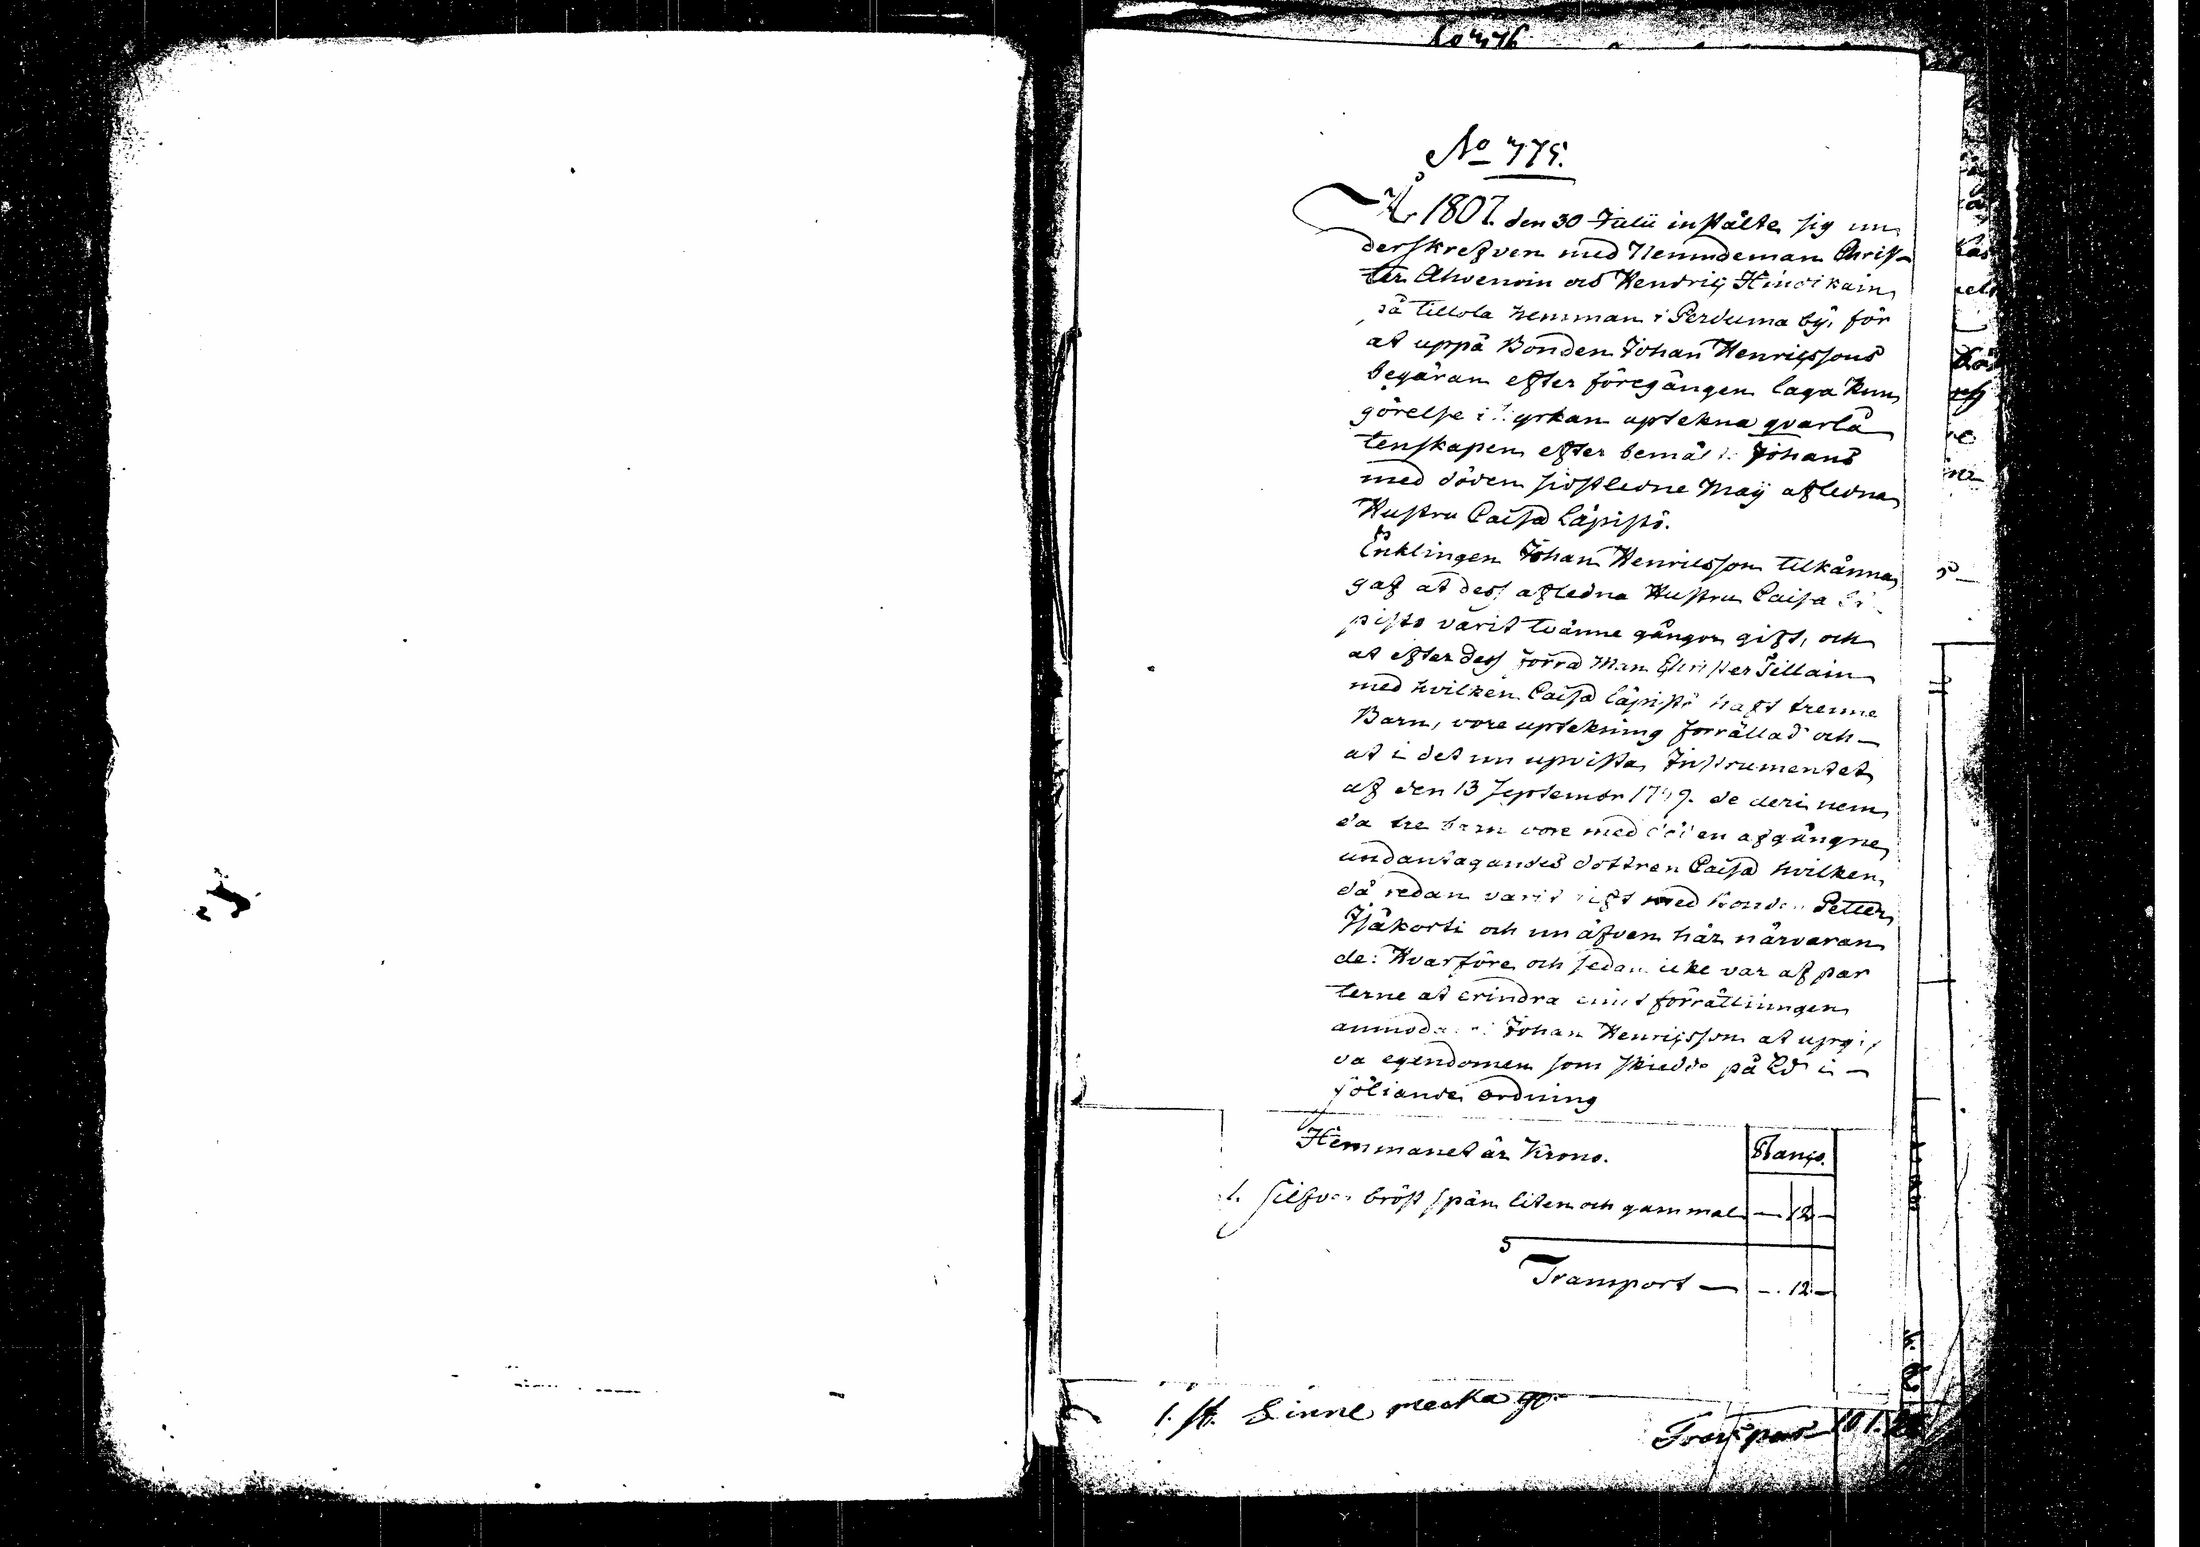 No 775.
År 1807. den 30 Julii instälte sig un
derskrefven med Nemndeman Chris-
ter Ahvenain och Hendric Hindikain
på Tillola hemman i Perduma by, för
at uppå Bonden Johan Henricssons
begäran efter föregången laga kun
görelse i Kyrkan uptekna qvarlå
tenskapen efter bemäl:te Johans
med döden sistledne Maij afledna
Hustru Caisa Läpistö.
Enklingen Johan Henricsson tilkänna
gaf at dess afledna Hustru Caisa Lä
pistö varit tvänne gångor gift, och
at efter dess förra Man Christer Tillain
med hvilken Caisa Läpistö haft trenne
Barn, vore uptekning förrättad och
at i det nu upvista Instrumentet
af den 13 September de deri nem
da tre barn vore med döden afgångne
undantagandes dottren Caisa hvilken
då redan varit gift med bonden Petter
och nu äfven här närvaran
de: Hvarföre och sedan icke var af par
terne at erindra emot förrättningen
anmodades Johan Henricsson at upgif
va egendomen som skiedde på Ed i
följande ordning
Hemmanet är Krono.
Banco.
1. silfver bröst spän liten och gammal — 12 —
Transport — — 12 —
1. st. Linne
Transport 101.